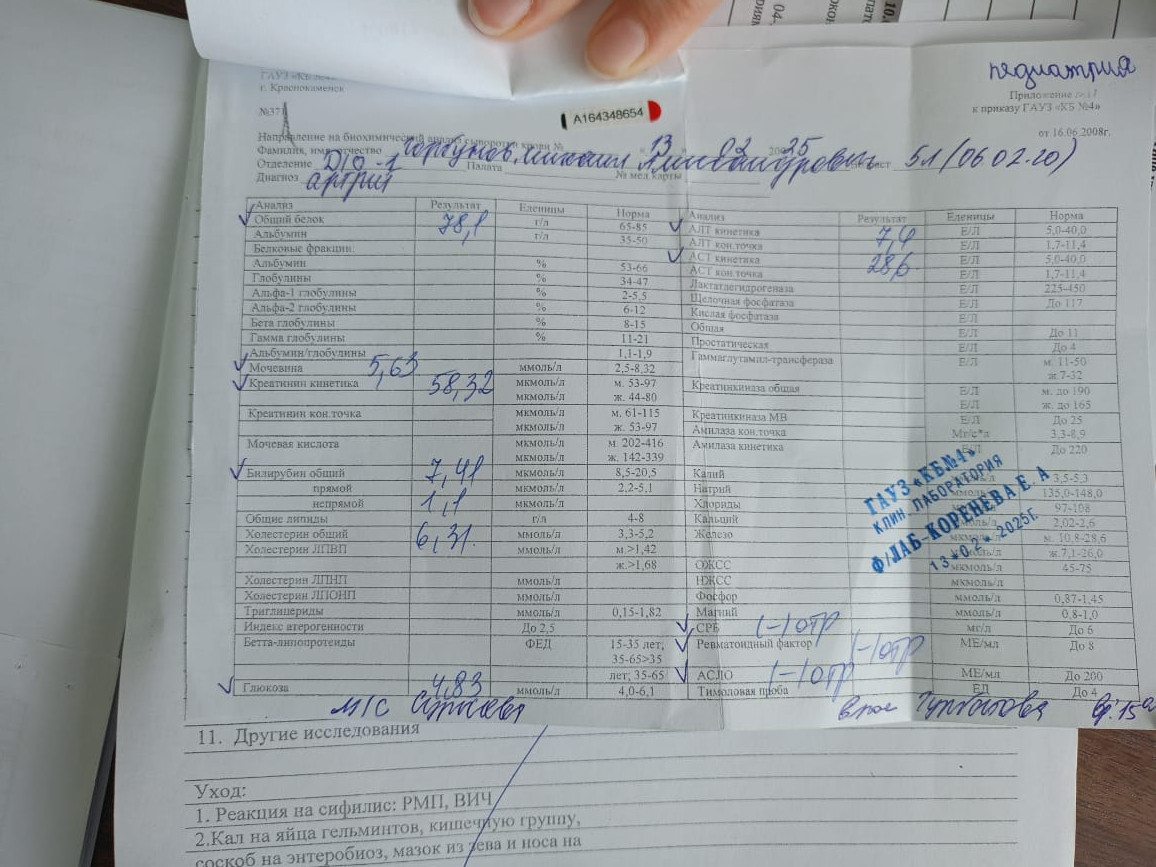 педиатрия
ГАУЗ «КБ №4»
г. Краснокаменск
Приложение №17
к приказу ГАУЗ «КБ №4»
№37
A164348654
от 16.06.2008г.
Направление на биохимический анализ сыворотки крови № « 13 » 02 2025
Фамилия, имя, отчество Горбунов Михаил Александрович 5л (06 02.20)
Отделение Д/О-1 Палата № мед.карты
Диагноз артрит
Анализ Результат Еденицы Норма Анализ Результат Еденицы Норма
Общий белок 78,1 г/л 65-85 АЛТ кинетика 7,4 Е/Л 5,0-40,0
Альбумин г/л 35-50 АЛТ кон.точка Е/Л 1,7-11,4
Белковые фракции: АСТ кинетика 28,6 Е/Л 5,0-40,0
Альбумин % 53-66 АСТ кон.точка Е/Л 1,7-11,4
Глобулины % 34-47 Лактатдегидрогеназа Е/Л 225-450
Альфа-1 глобулины % 2-5,5 Щелочная фосфатаза Е/Л До 117
Альфа-2 глобулины % 6-12 Кислая фосфатаза Е/Л
Бета глобулины % 8-15 Общая Е/Л До 11
Гамма глобулины % 11-21 Простатическая Е/Л До 4
Альбумин/глобулины 1,1-1,9 Гаммаглутамил-трансфераза Е/Л м. 11-50
Мочевина 5,63 ммоль/л 2,5-8,32 ж.7-32
Креатинин кинетика 58,32 мкмоль/л м. 53-97 Креатинкиназа общая Е/Л м. до 190
мкмоль/л ж. 44-80 Е/Л ж. до 165
Креатинин кон.точка мкмоль/л м. 61-115 Креатинкиназа МВ Е/Л До 25
мкмоль/л ж. 53-97 Амилаза кон.точка Мг/с*л 3,3-8,9
Мочевая кислота мкмоль/л м. 202-416 Амилаза кинетика Е/Л До 220
мкмоль/л ж. 142-339
Билирубин общий 7,41 мкмоль/л 8,5-20,5 Калий ммоль/л 3,5-5,3
прямой 1,1 мкмоль/л 2,2-5,1 Натрий ммоль/л 135,0-148,0
непрямой мкмоль/л Хлориды 97-108
Общие липиды г/л 4-8 Кальций ммоль/л 2,02-2,6
Холестерин общий 6,31 ммоль/л 3,3-5,2 Железо мкмоль/л м. 10,8-28,6
Холестерин ЛПВП ммоль/л м.>1,42 мкмоль/л ж.7,1-26,0
ж.>1,68 ОЖСС мкмоль/л 45-75
Холестерин ЛПНП ммоль/л НЖСС мкмоль/л
Холестерин ЛПОНП ммоль/л Фосфор ммоль/л 0,87-1,45
Триглицериды ммоль/л 0,15-1,82 Магний ммоль/л 0,8-1,0
Индекс атерогенности До 2,5 СРБ (-) отр мг/л До 6
Бетта-липопротеиды ФЕД 15-35 лет; Ревматоидный фактор (-) отр МЕ/мл До 8
35-65>35
лет; 35-65 АСЛО (-) отр МЕ/мл До 200
Глюкоза 4,83 ммоль/л 4,0-6,1 Тимоловая проба ЕД До 4
ГАУЗ «КБ№4»
КЛИН ЛАБОРАТОРИЯ
Ф/ЛАБ-КОРЕНЕВА Е. А
13 * 02 * 2025г.
М/С
11. Другие исследования
Уход:
1. Реакция на сифилис: РМП, ВИЧ
2.Кал на яйца гельминтов, кишечную группу,
соскоб на энтеробиоз, мазок из зева и носа на